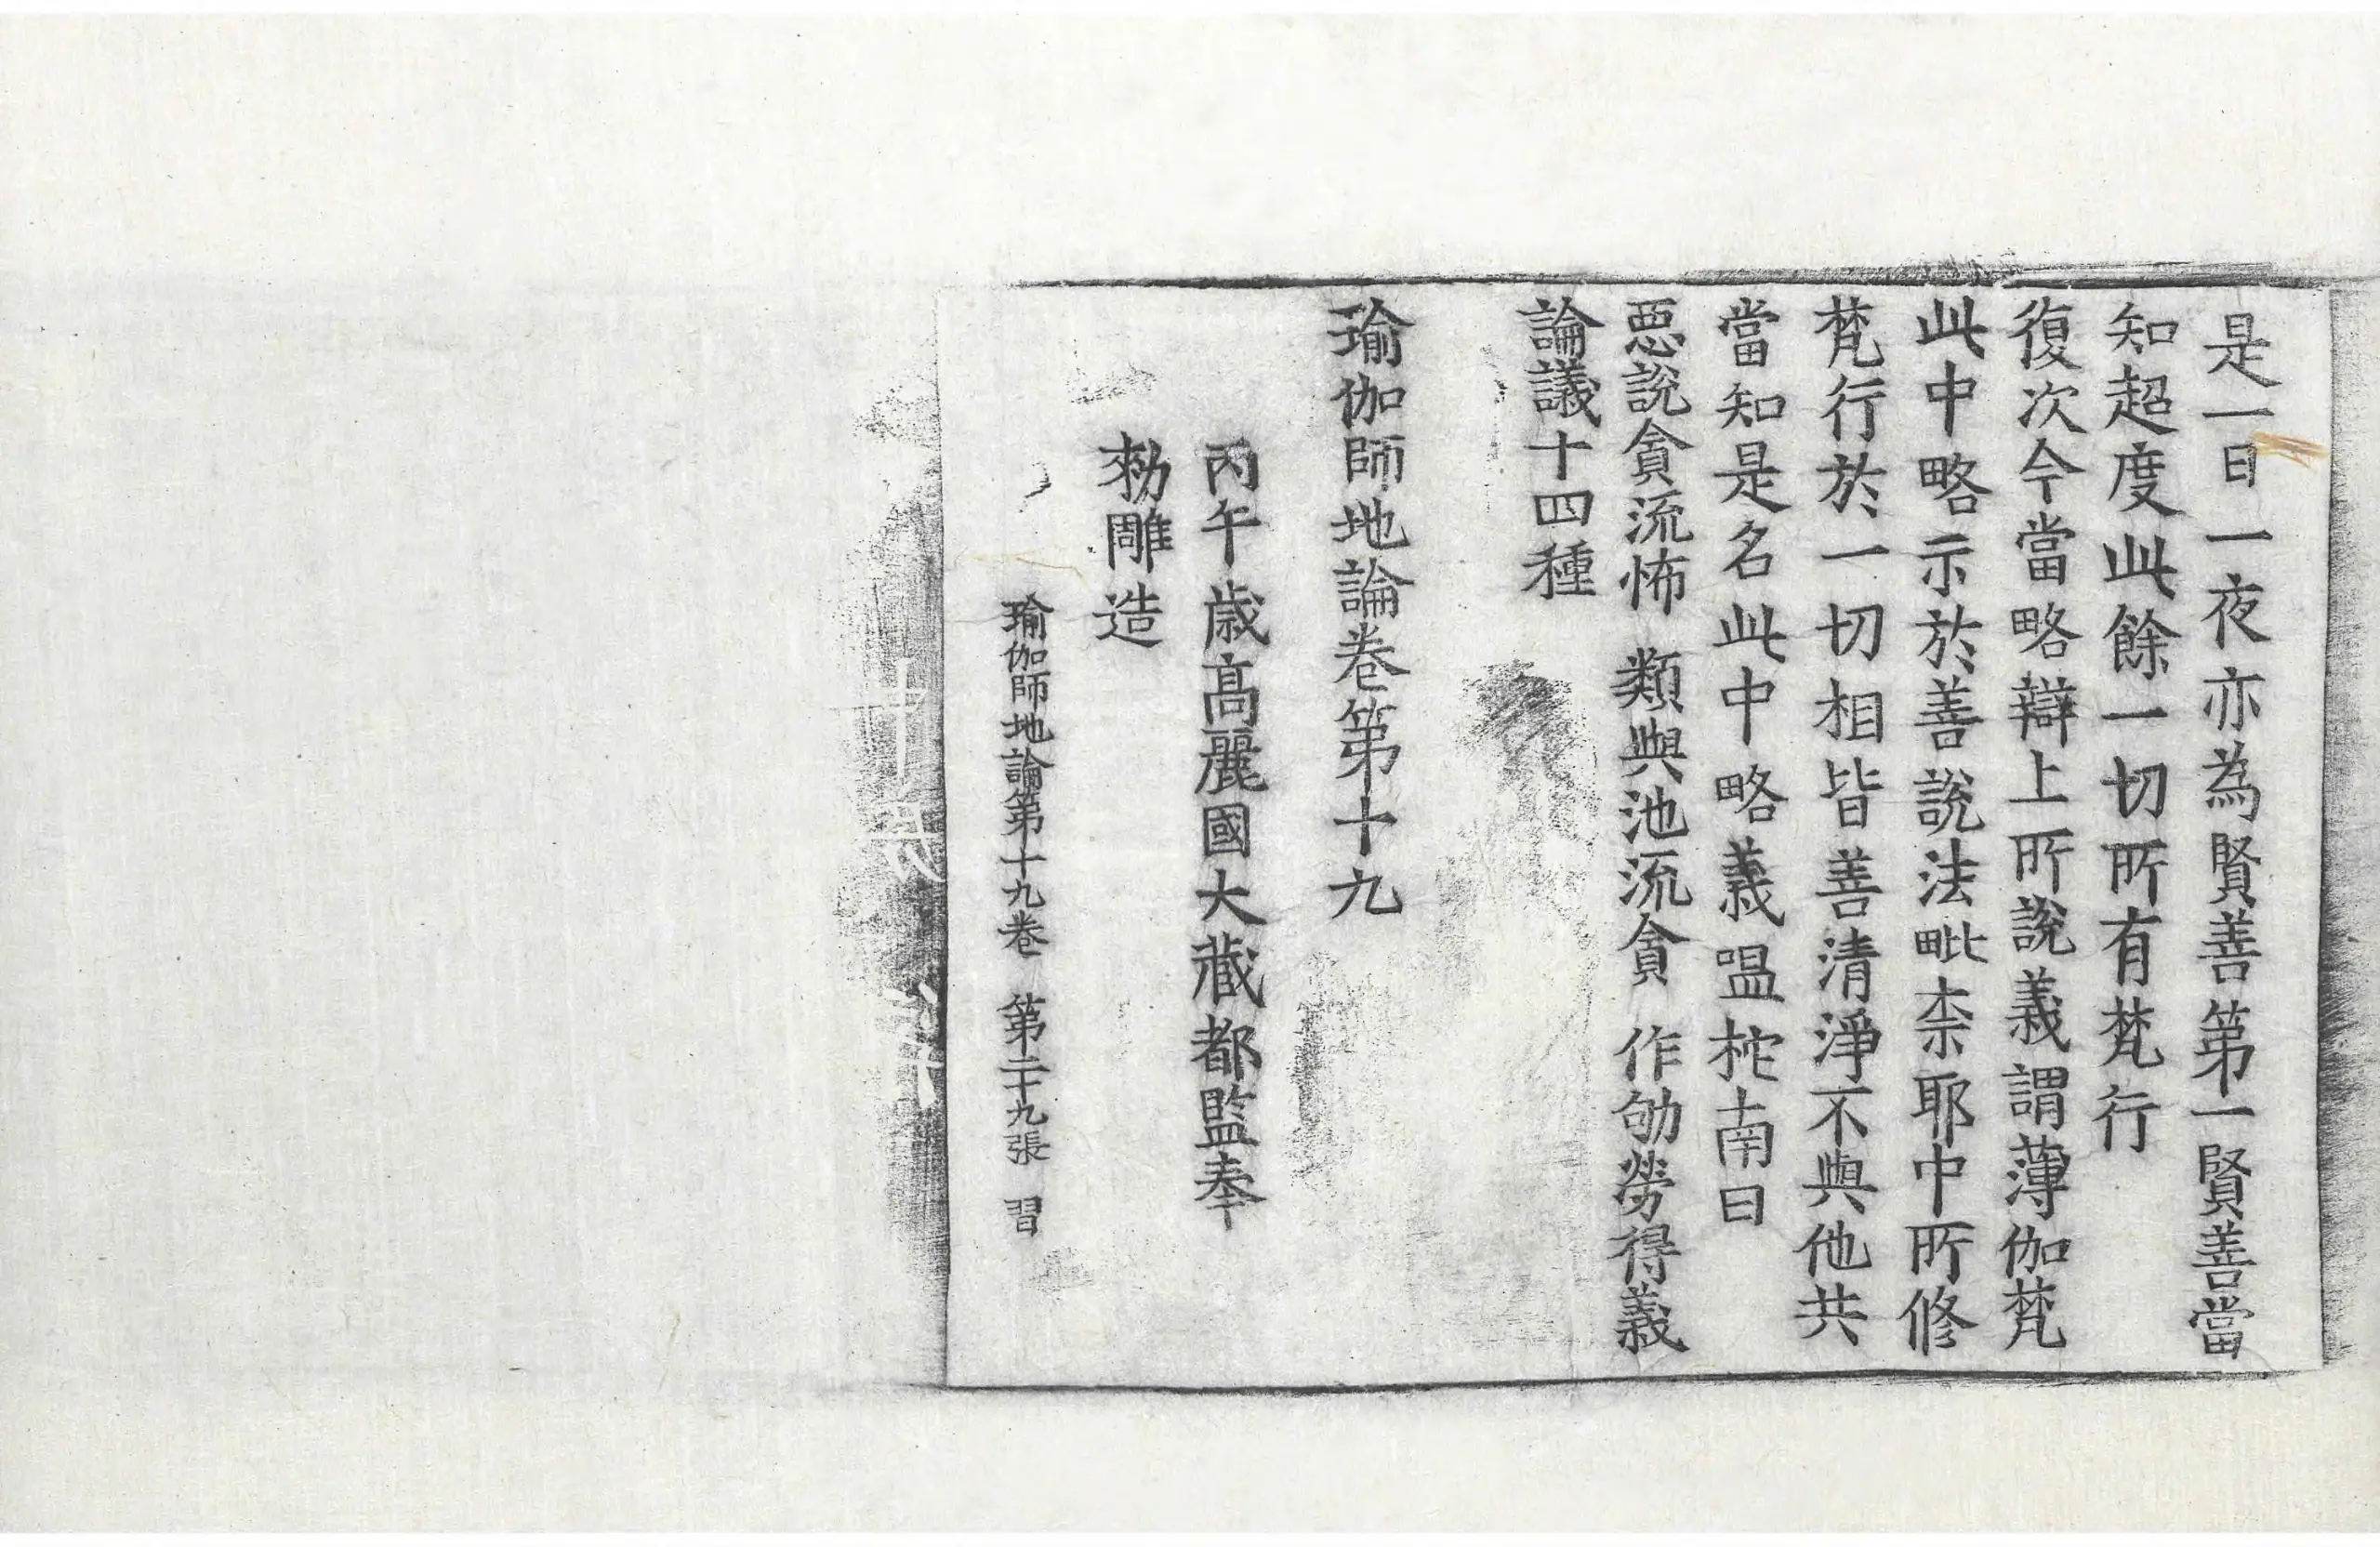 是一日一夜亦為賢善第一賢善當
知超度此餘一切所有梵行
復次今當略辯上所說義謂薄伽梵
此中略示於善說法毗柰耶中所修
梵行於一切相皆善清淨不與他共
當知是名此中略義嗢柁南曰
惡說貪流怖 類與池流貪 作劬勞得義
論議十四種
瑜伽師地論卷第十九
丙午歲高麗國大藏都監奉
勅雕造
瑜伽師地論第十九卷 第二十九張 習